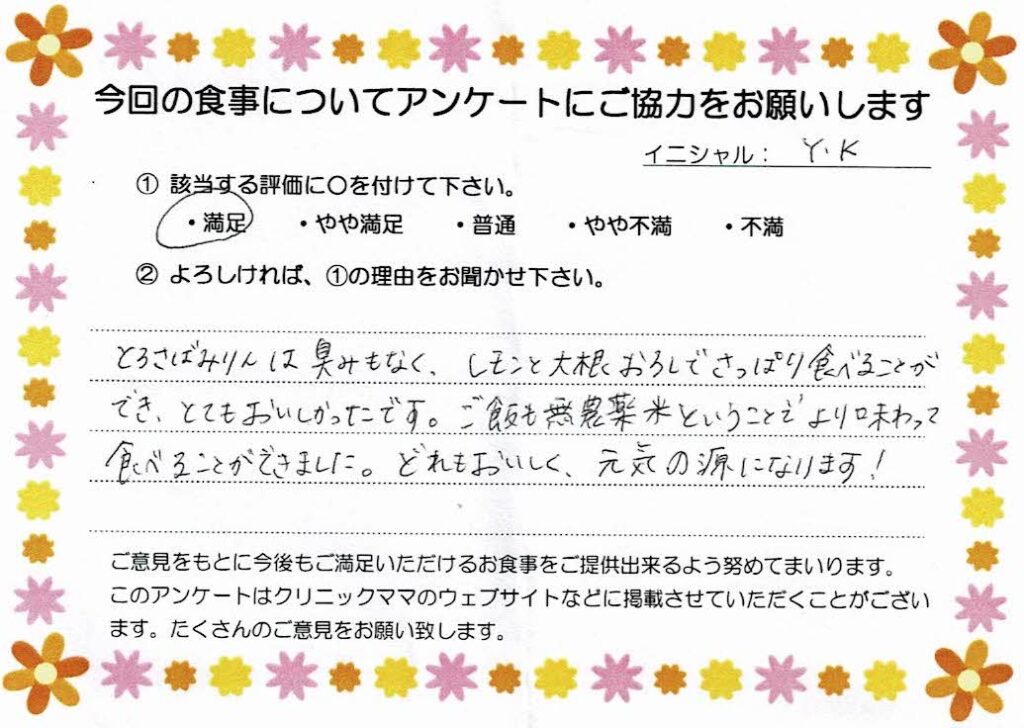 今回の食事についてアンケートにご協力をお願いします
イニシャル： Y.K
① 該当する評価に〇を付けて下さい。
・満足 ・やや満足 ・普通 ・やや不満 ・不満
② よろしければ、①の理由をお聞かせ下さい。
とろさばみりんは臭みもなく、レモンと大根おろしでさっぱり食べることが
でき、とてもおいしかったです。ご飯も無農薬米ということでより味わって
食べることができました。どれもおいしく、元気の源になります！
ご意見をもとに今後もご満足いただけるお食事をご提供出来るよう努めてまいります。
このアンケートはクリニックママのウェブサイトなどに掲載させていただくことがござい
ます。たくさんのご意見をお願い致します。